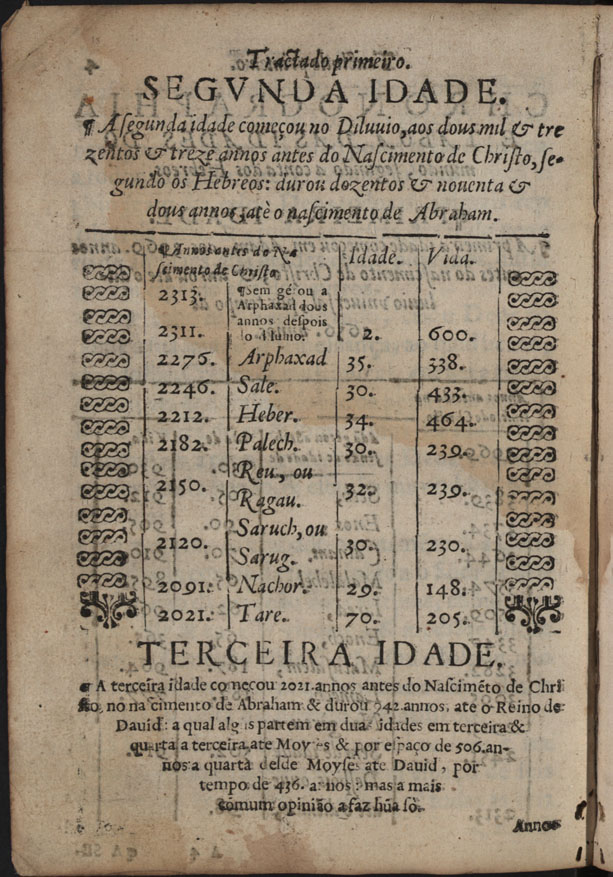 Tractado primeiro.
SEGVNDA IDADE.
¶ A ſegunda idade começou no Diluuio, aos dous mil & tre
zentos & treze annos antes do Naſcimento de Chriſto, ſe-
gundo os Hebreos: durou dozentos & nouenta &
dous annos, atè o naſcimento de Abraham.
¶ Annos antes do Na Idade. Vida.
ſcimento de Chriſto
2313. ¶ Sem gẽ ou a
Arphaxad dous
annos deſpois
2311. do Diluuio. 2. 600.
2276. Arphaxad 35. 338.
2246. Sale. 30. 433.
2212. Heber. 34. 464.
2182. Palech. 30. 239.
2150. Reu, ou
Ragau. 32. 239.
2120. Saruch, ou
Sarug. 30. 230.
2091. Nachor. 29. 148.
2021. Tare. 70. 205.
TERCEIRA IDADE.
¶ A terceira idade começou 2021. annos antes do Naſcimẽto de Chri
ſto, no naſcimento de Abraham & durou 942. annos, ate o Reino de
Dauid: a qual algũs partem em duas idades em terceira &
quarta a terceira ate Moyſes & por eſpaço de 506. an-
nos a quarta deſde Moyſes ate Dauid, por
tempo de 436. annos: mas a mais
comum opinião a faz hũa ſò.
Annos